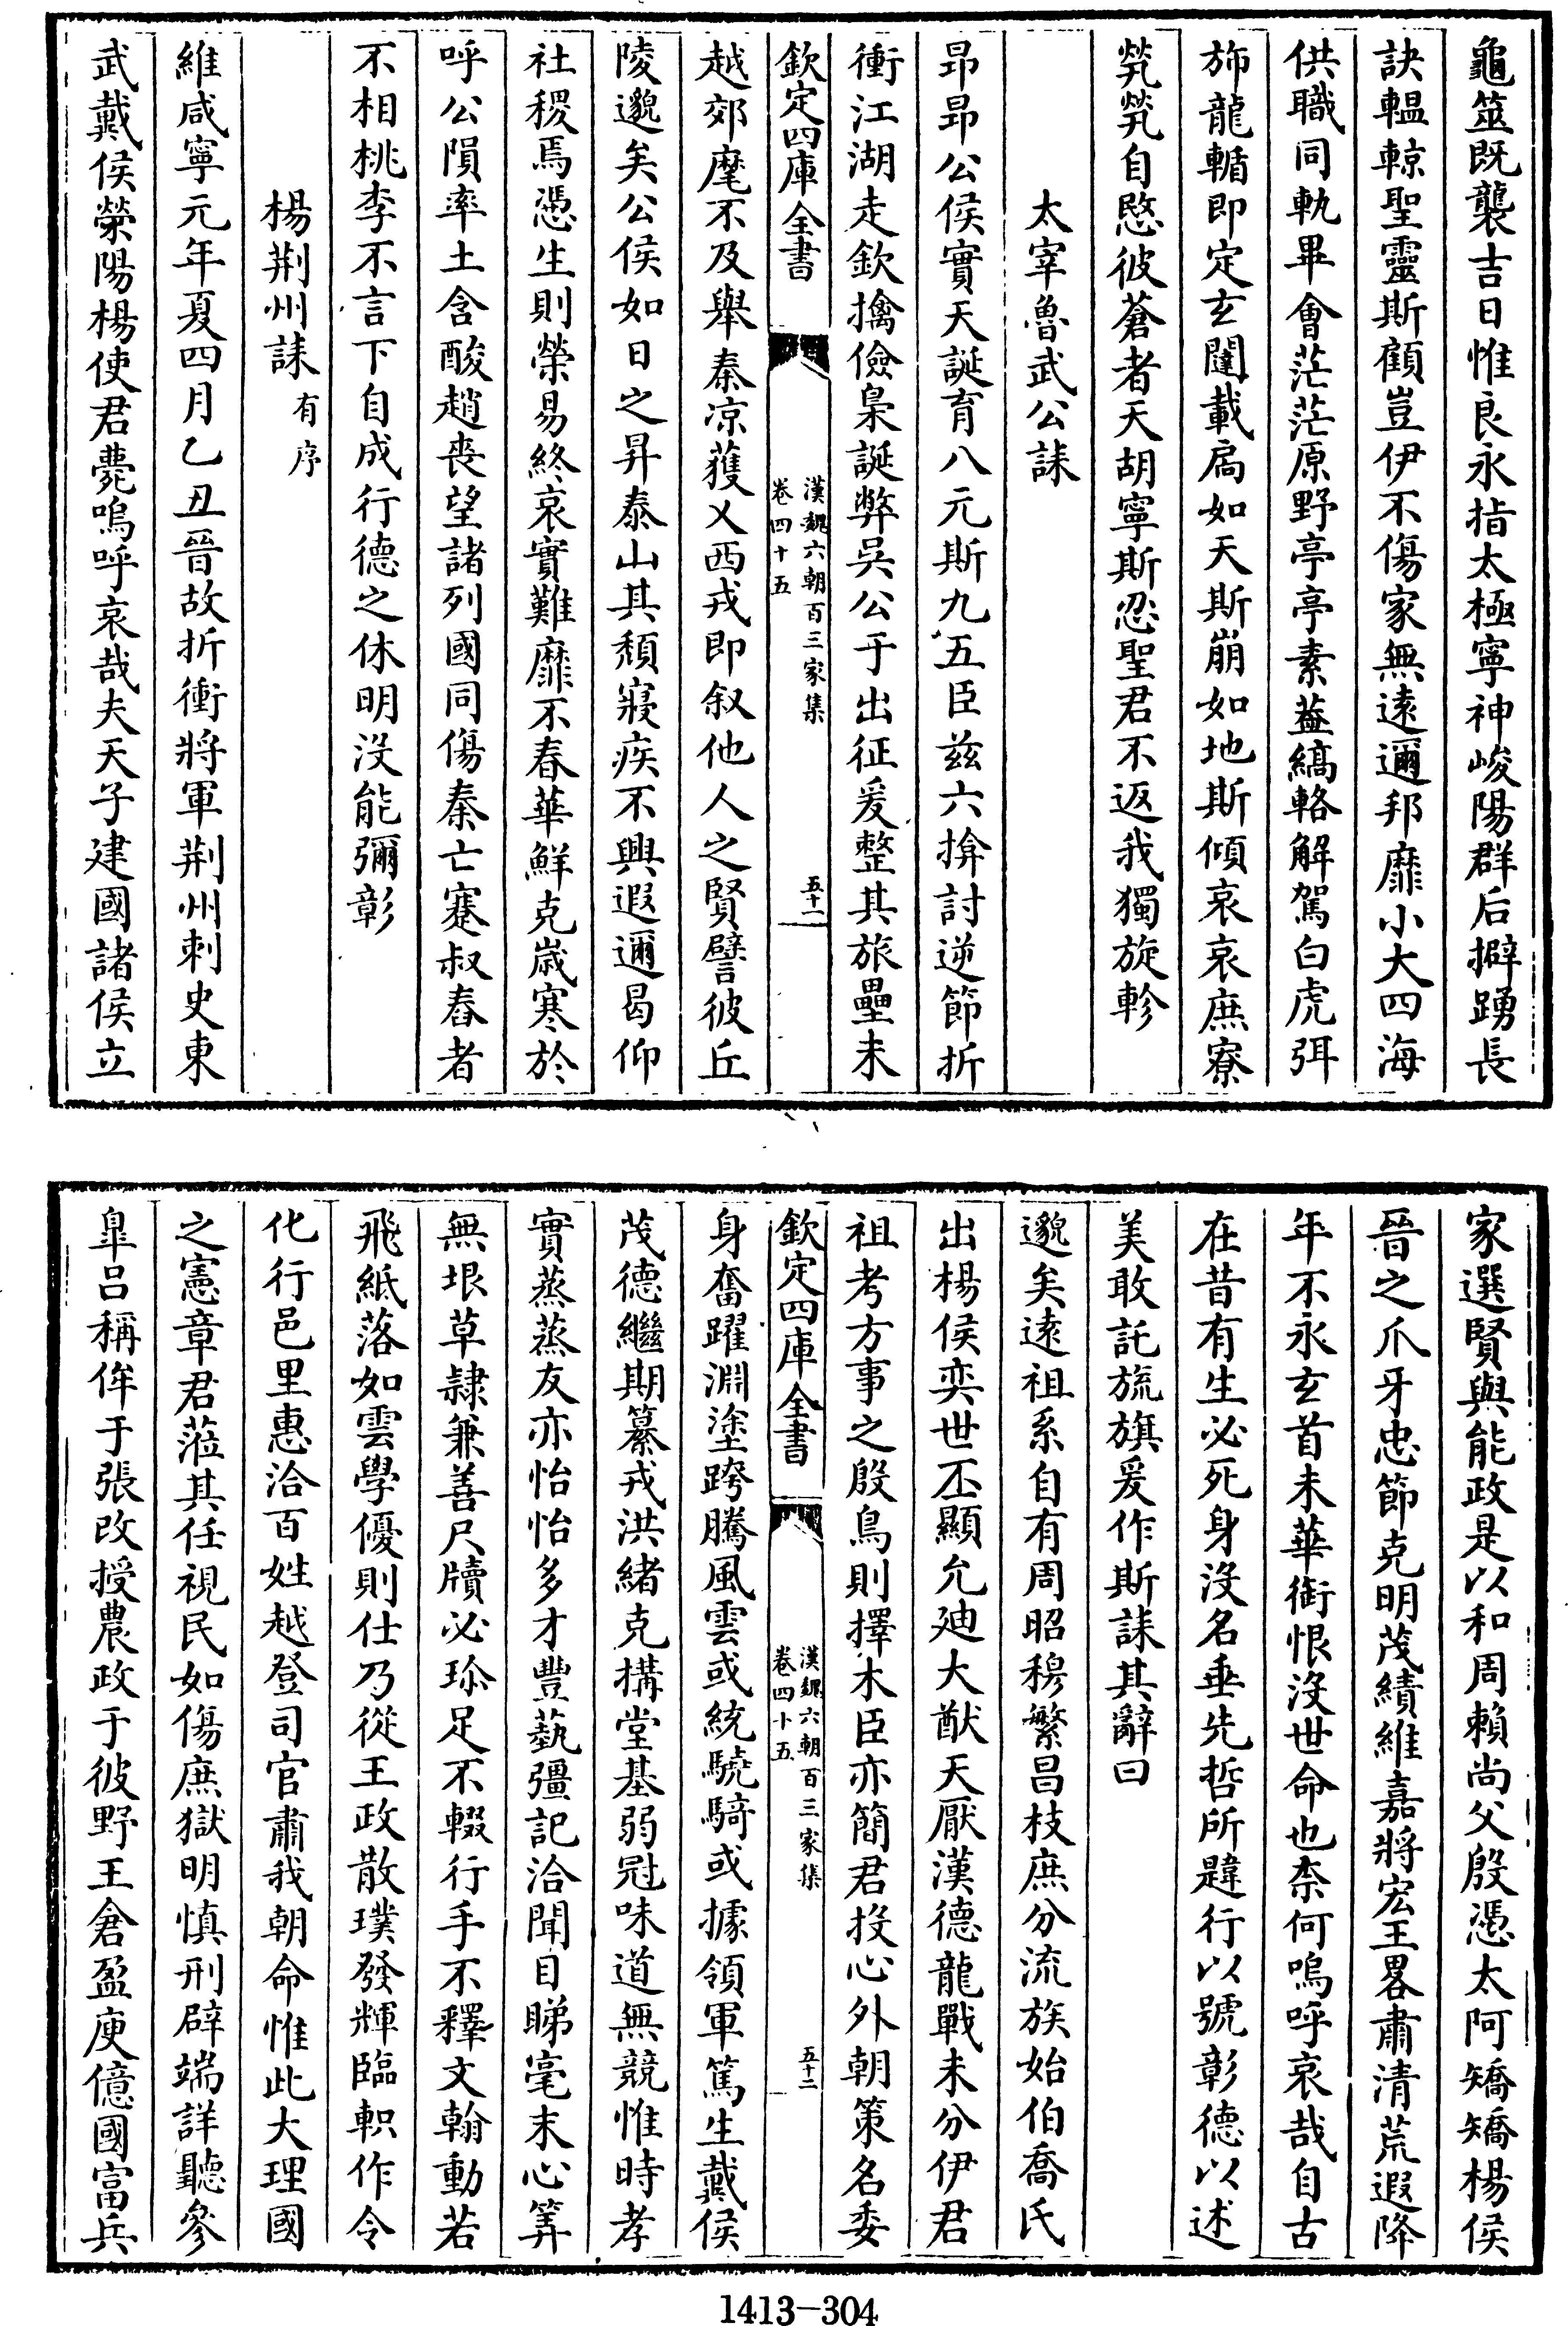 龜筮既襲吉日惟良永指太極寧神峻陽群后擗踴長
訣轀輬聖靈斯顧豈伊不傷家無逺邇邦靡小大四海
供職同軌畢會茫茫原野亭亭素葢縞輅解駕白虎弭
斾龍輴即定玄闥載扃如天斯崩如地斯傾哀哀庶寮
煢煢自愍彼蒼者天胡寧斯忍聖君不返我獨旋軫
太宰魯武公誄
昂昂公侯實天誕育八元斯九五臣兹六揜討逆節折
衝江湖走欽擒儉梟誕弊吳公于出征爰整其旅壘未
欽定四庫全書
漢魏六朝百三家集
卷四十五
五十一
越郊麾不及舉秦凉蒦乂西戎即叙他人之賢譬彼丘
陵邈矣公侯如日之昇泰山其頽寢疾不興遐邇曷仰
社稷焉憑生則榮易終哀實難靡不春華鮮克嵗寒於
呼公隕率土含酸趙喪望諸列國同傷秦亡蹇叔舂者
不相桃李不言下自成行德之休明没能彌彰
楊荆州誄有序
維咸寧元年夏四月乙丑晉故折衝將軍荆州刺史東
武戴侯滎陽楊使君薨嗚呼哀哉夫天子建國諸侯立
家選賢與能政是以和周賴尚父殷憑太阿矯矯楊侯
晉之爪牙忠節克明茂績維嘉將宏王畧肅清荒遐降
年不永玄首未華銜恨没世命也柰何嗚呼哀哉自古
在昔有生必死身没名垂先哲所韙行以號彰德以述
美敢託旒旗爰作斯誄其辭曰
邈矣逺祖系自有周昭穆繁昌枝庶分流族始伯喬氏
出楊侯奕世丕顯允廸大猷天厭漢德龍戰未分伊君
祖考方事之殷鳥則擇木臣亦簡君投心外朝策名委
欽定四庫全書
漢魏六朝百三家集
卷四十五
五十二
身奮躍淵塗跨騰風雲或統驍騎或據領軍篤生戴侯
茂德繼期纂戎洪緒克構堂基弱冠味道無競惟時孝
實蒸蒸友亦怡怡多才豐藝彊記洽聞目睇毫末心筭
無垠草隸兼善尺牘必珎足不輟行手不釋文翰動若
飛紙落如雲學優則仕乃從王政散璞發輝臨軹作令
化行邑里惠洽百姓越登司官肅我朝命惟此大理國
之憲章君蒞其任視民如傷庶獄明慎刑辟端詳聽參
臯吕稱侔于張改授農政于彼野王倉盈庾億國富兵
1413-304